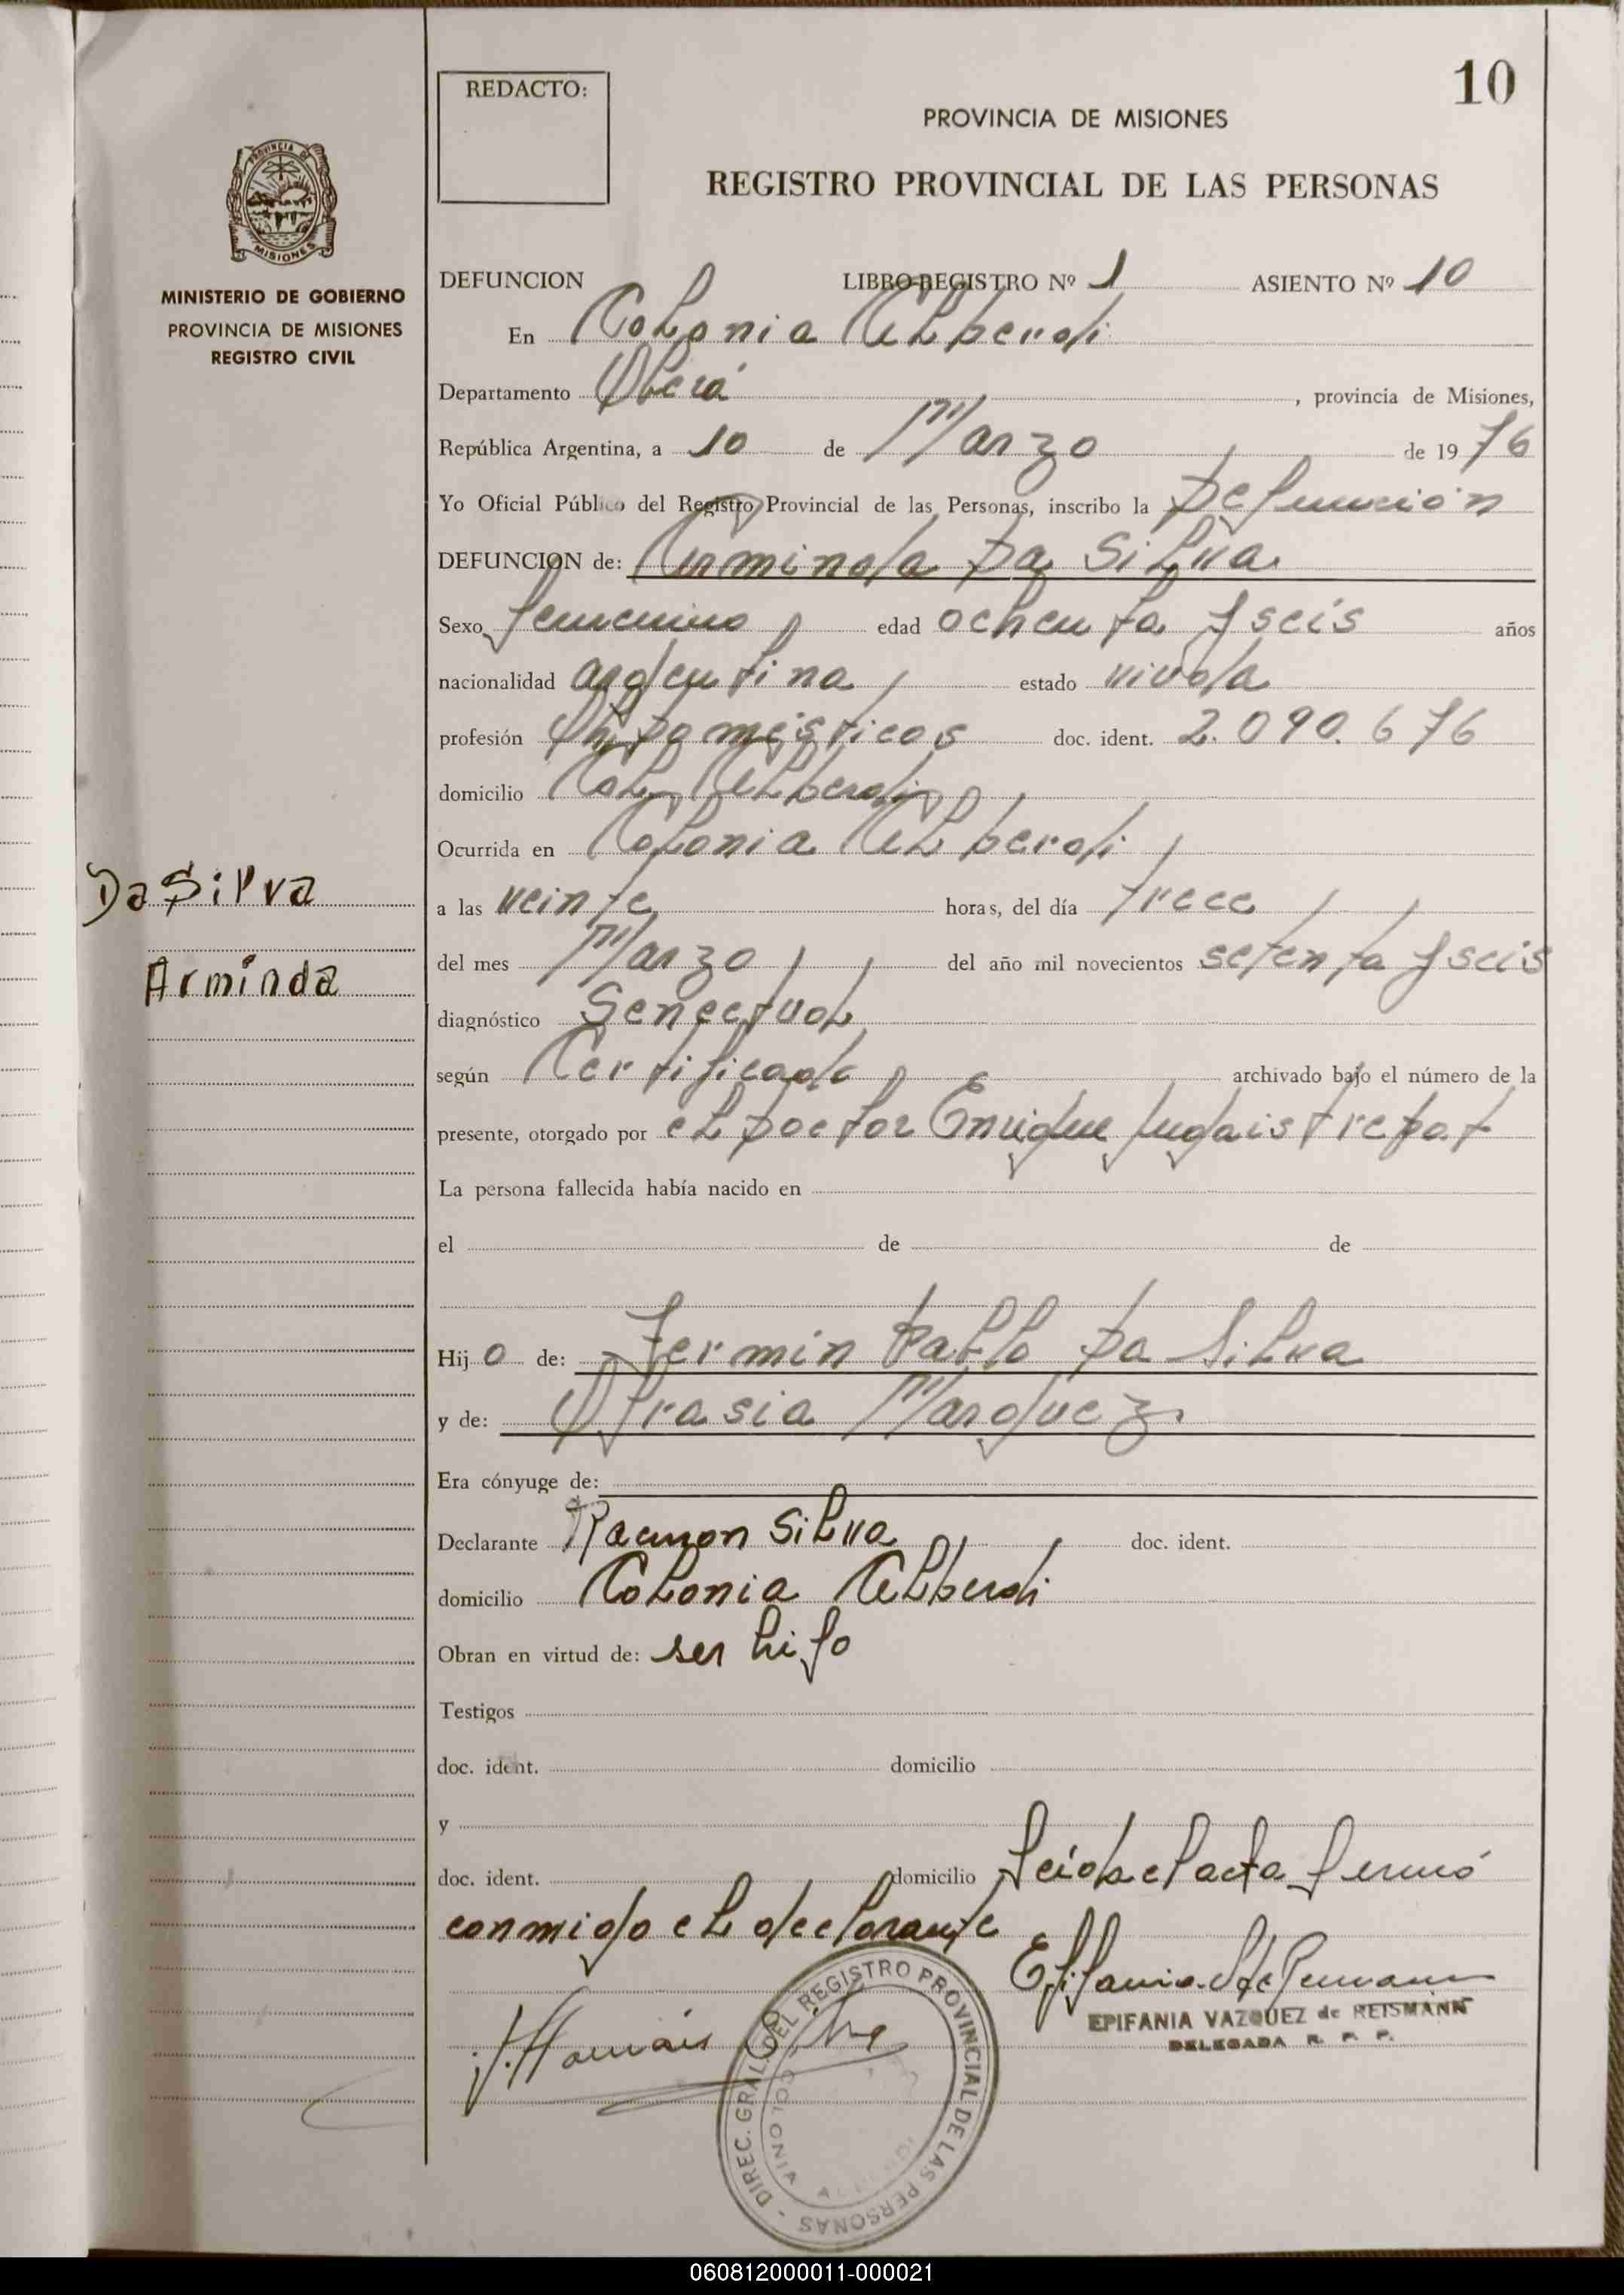 10
REDACTO:
PROVINCIA DE MISIONES
REGISTRO PROVINCIAL DE LAS PERSONAS
PROVINCIA DE
MISIONES
MINISTERIO DE GOBIERNO
PROVINCIA DE MISIONES
REGISTRO CIVIL
DEFUNCION LIBRO-REGISTRO Nº 1 ASIENTO Nº 10
En Colonia Alberdi
Departamento Oberá, provincia de Misiones,
República Argentina, a 10 de Marzo de 1976
Yo Oficial Público del Registro Provincial de las Personas, inscribo la Defunción
DEFUNCION de: Arminda Da Silva
Sexo femenino, edad ochenta y seis años
nacionalidad argentina, estado viuda
profesión Qh. Domésticos doc. ident. 2.090.676
domicilio Col. Alberdi
Ocurrida en Colonia Alberdi,
Da Silva
a las veinte horas, del día trece,
del mes Marzo, del año mil novecientos setenta y seis
Arminda
diagnóstico Senectud,
según Certificado archivado bajo el número de la
presente, otorgado por el Doctor Enrique
La persona fallecida había nacido en
el de de
Hijo de: Fermin Pablo Da Silva
y de: Ofrasia Marquez
Era cónyuge de:
Declarante Ramon Silva doc. ident.
domicilio Colonia Alberdi
Obran en virtud de: ser hijo
Testigos
doc. ident. domicilio
y
doc. ident. domicilio Leida el acta firmó
conmigo el declarante
EPIFANIA VAZQUEZ de REISMANN
DELEGADA R. P. P.
DIREC. GRAL. DEL REGISTRO PROVINCIAL DE LAS PERSONAS
COLONIA ALBERDI
060812000011-000021